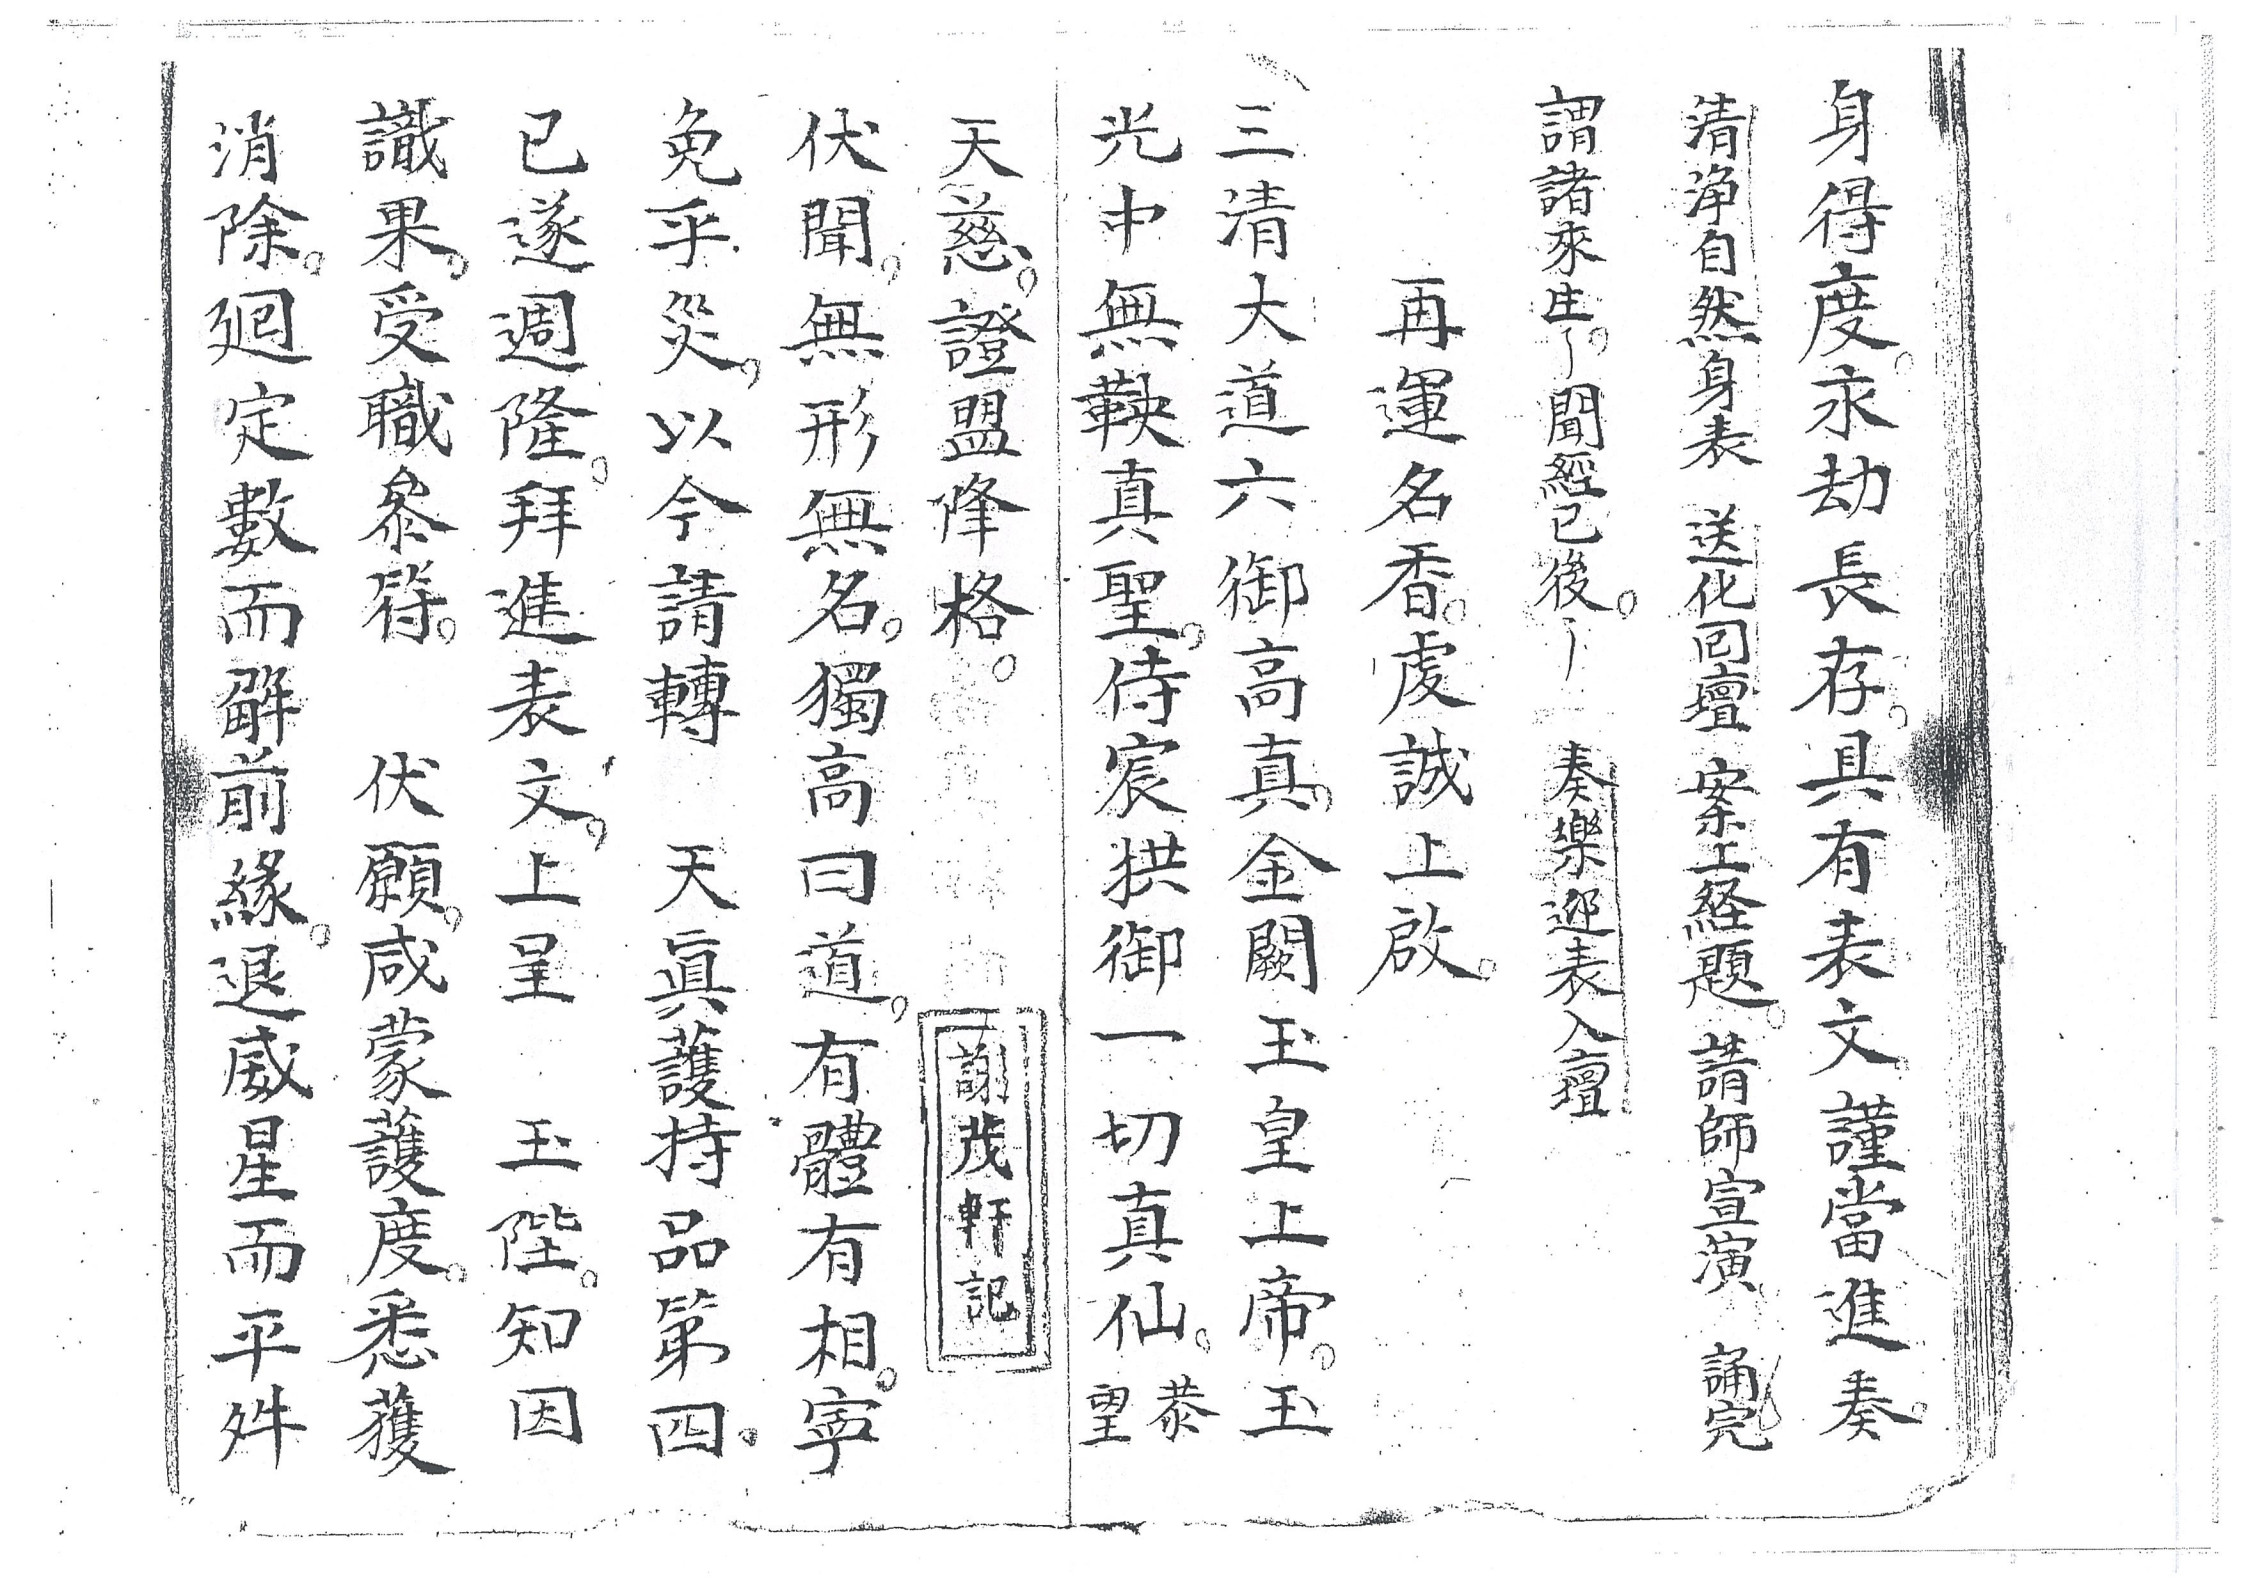 身得度。永劫長存。具有表文。謹當進奏。
清淨自然身表 送化回壇 案上經題。請師宣演 誦完
謂諸來生。聞經已後。 奏樂迎表入壇
再運名香。虔誠上啟。
三清大道六御高真。金闕玉皇上帝。玉
光中無鞅真聖。侍宸拱御一切真仙。恭望
天慈。證盟降格。
謝茂軒記
伏聞。無形無名。獨高曰道。有體有相。寧
免乎災。以今請轉 天眞護持品第四。
已遂週隆。拜進表文。上呈 玉陛。知因
識果。受職參符。 伏願。咸蒙護度。悉獲
消除。廻定數而解前緣。退威星而平